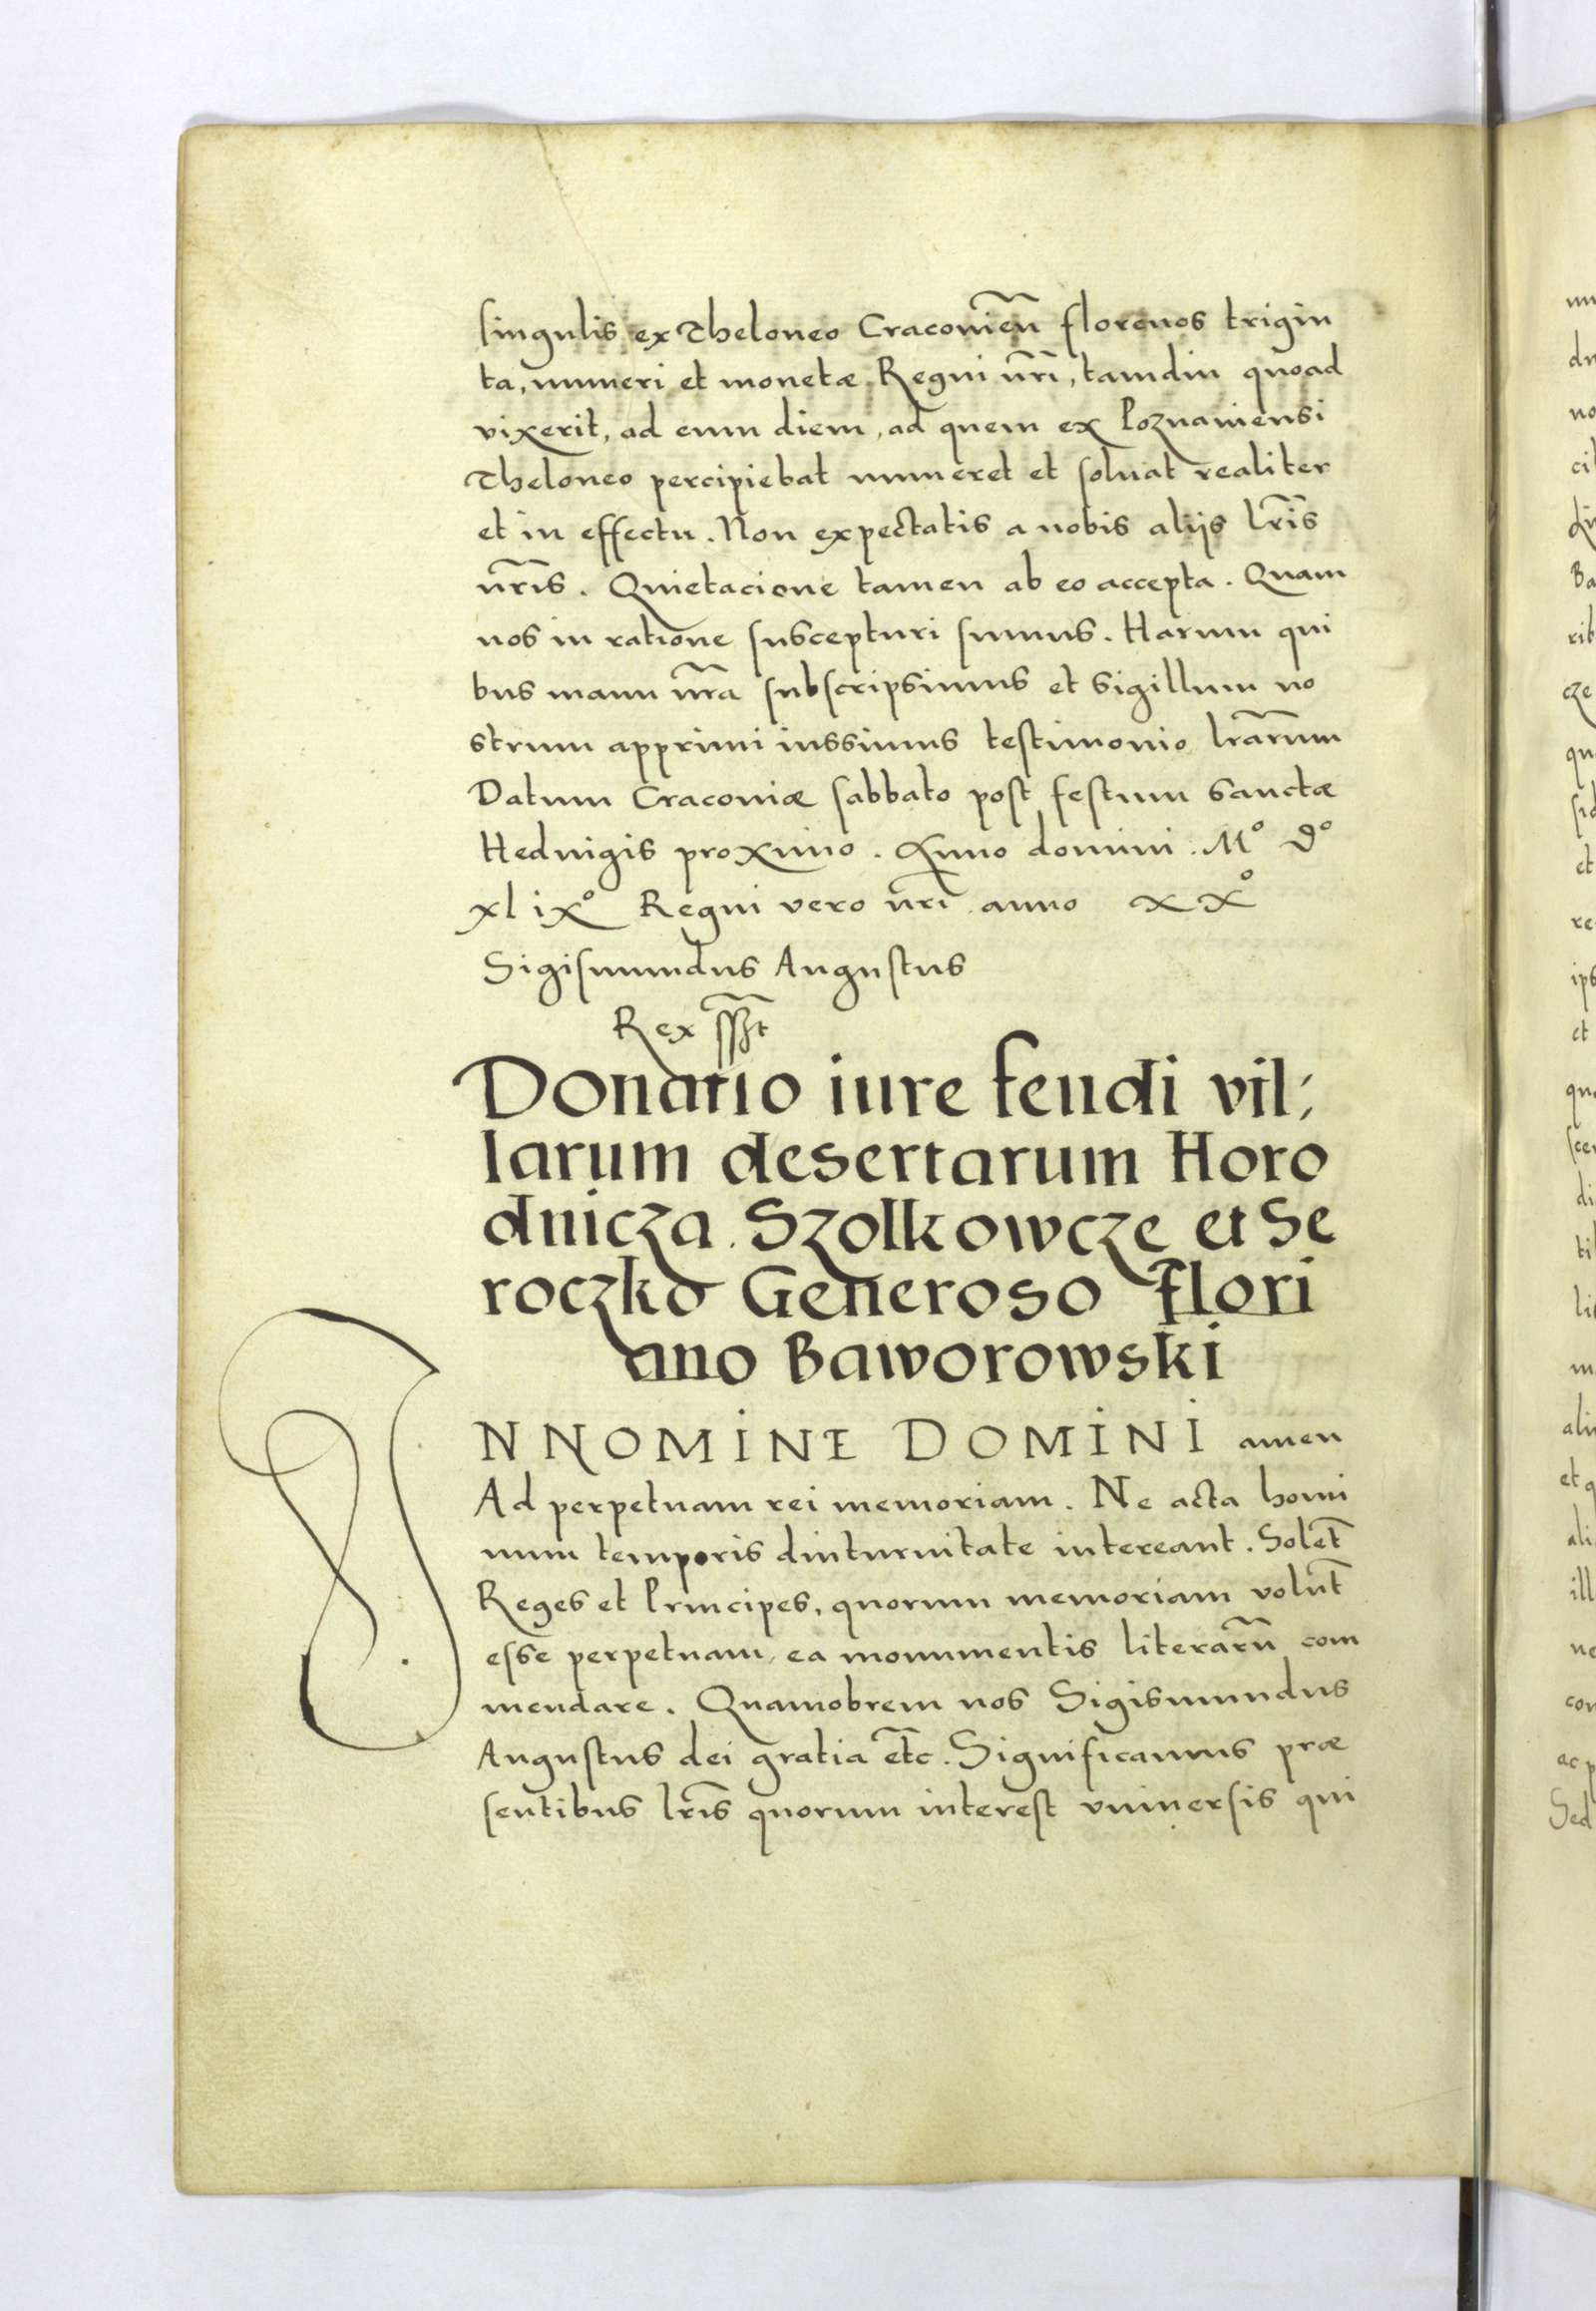 singulis ex Theloneo Cracovieñ florenos trigin
ta, numeri et monetæ Regni nr̃i, tamdiu quoad
vixerit, ad eum diem, ad quem ex Poznaniensi
Theloneo percipiebat numeret et solvat realiter
et in effectu. Non expectatis a nobis alijs lr̃is
nr̃is. Quietacione tamen ab eo accepta. Quam
nos in ratione suscepturi sumus. Harum qui
bus manu nr̃a subscripsimus et sigillum no
strum apprimi iussimus testimonio lr̃arum
Datum Cracoviæ sabbato post festum Sanctæ
Hedvigis proximo. Anno domini. M° D°
xlix° Regni vero nr̃i anno xx°
Sigismundus Augustus
Rex sspt̃
Donatio iure feudi vil,
larum desertarum Horo
dnicza. Szolkowcze et Se
roczko Generoso Flori
ano Baworowski
IN NOMINE DOMINI amen
Ad perpetuam rei memoriam. Ne acta homi
num temporis diuturnitate intereant. Solet̃
Reges et Principes, quorum memoriam volut̃
esse perpetuam, ea monumentis literarũ com
mendare. Quamobrem nos Sigismundus
Augustus dei gratia etc̃. Significamus præ
sentibus lr̃is quorum interest universis qui